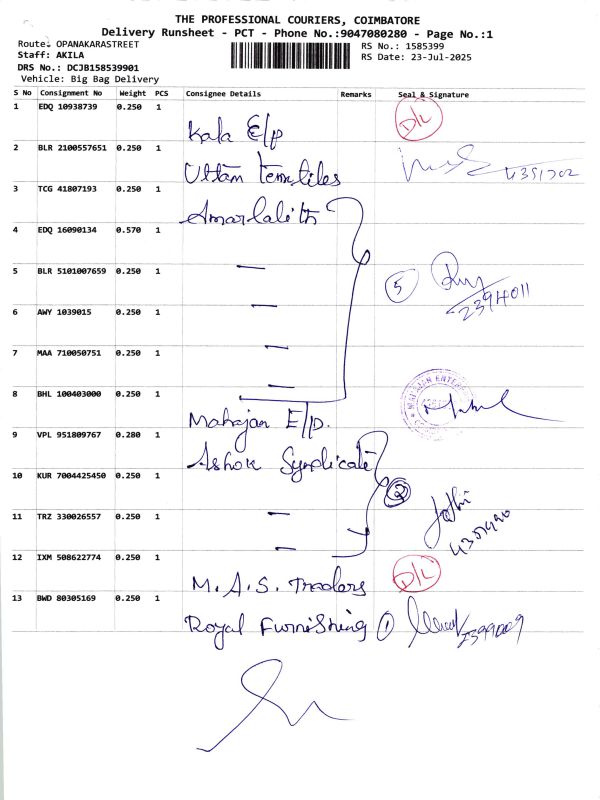 THE PROFESSIONAL COURIERS, COIMBATORE
Delivery Runsheet - PCT - Phone No.:9047080280 - Page No.:1
Route: OPANAKARASTREET
Staff: AKILA
DRS No.: DCJB158539901
Vehicle: Big Bag Delivery
RS No.: 1585399
RS Date: 23-Jul-2025
S No Consignment No Weight PCS Consignee Details Remarks Seal & Signature
1 EDQ 10938739 0.250 1 Kala E/p D/L
2 BLR 2100557651 0.250 1 Uttam Temtiles
3 TCG 41807193 0.250 1 Amarlalith
4 EDQ 16090134 0.570 1 —
5 BLR 5101007659 0.250 1 — 5 2394011
6 AWY 1039015 0.250 1 —
7 MAA 710050751 0.250 1 —
8 BHL 100403000 0.250 1 Mahajan E/p.
9 VPL 951809767 0.280 1 Ashok Syndicate
10 KUR 7004425450 0.250 1 — 2 Jothi
11 TRZ 330026557 0.250 1 —
12 IXM 508622774 0.250 1 M.A.S. Traders D/L
13 BWD 80305169 0.250 1 Royal Furnishing 1